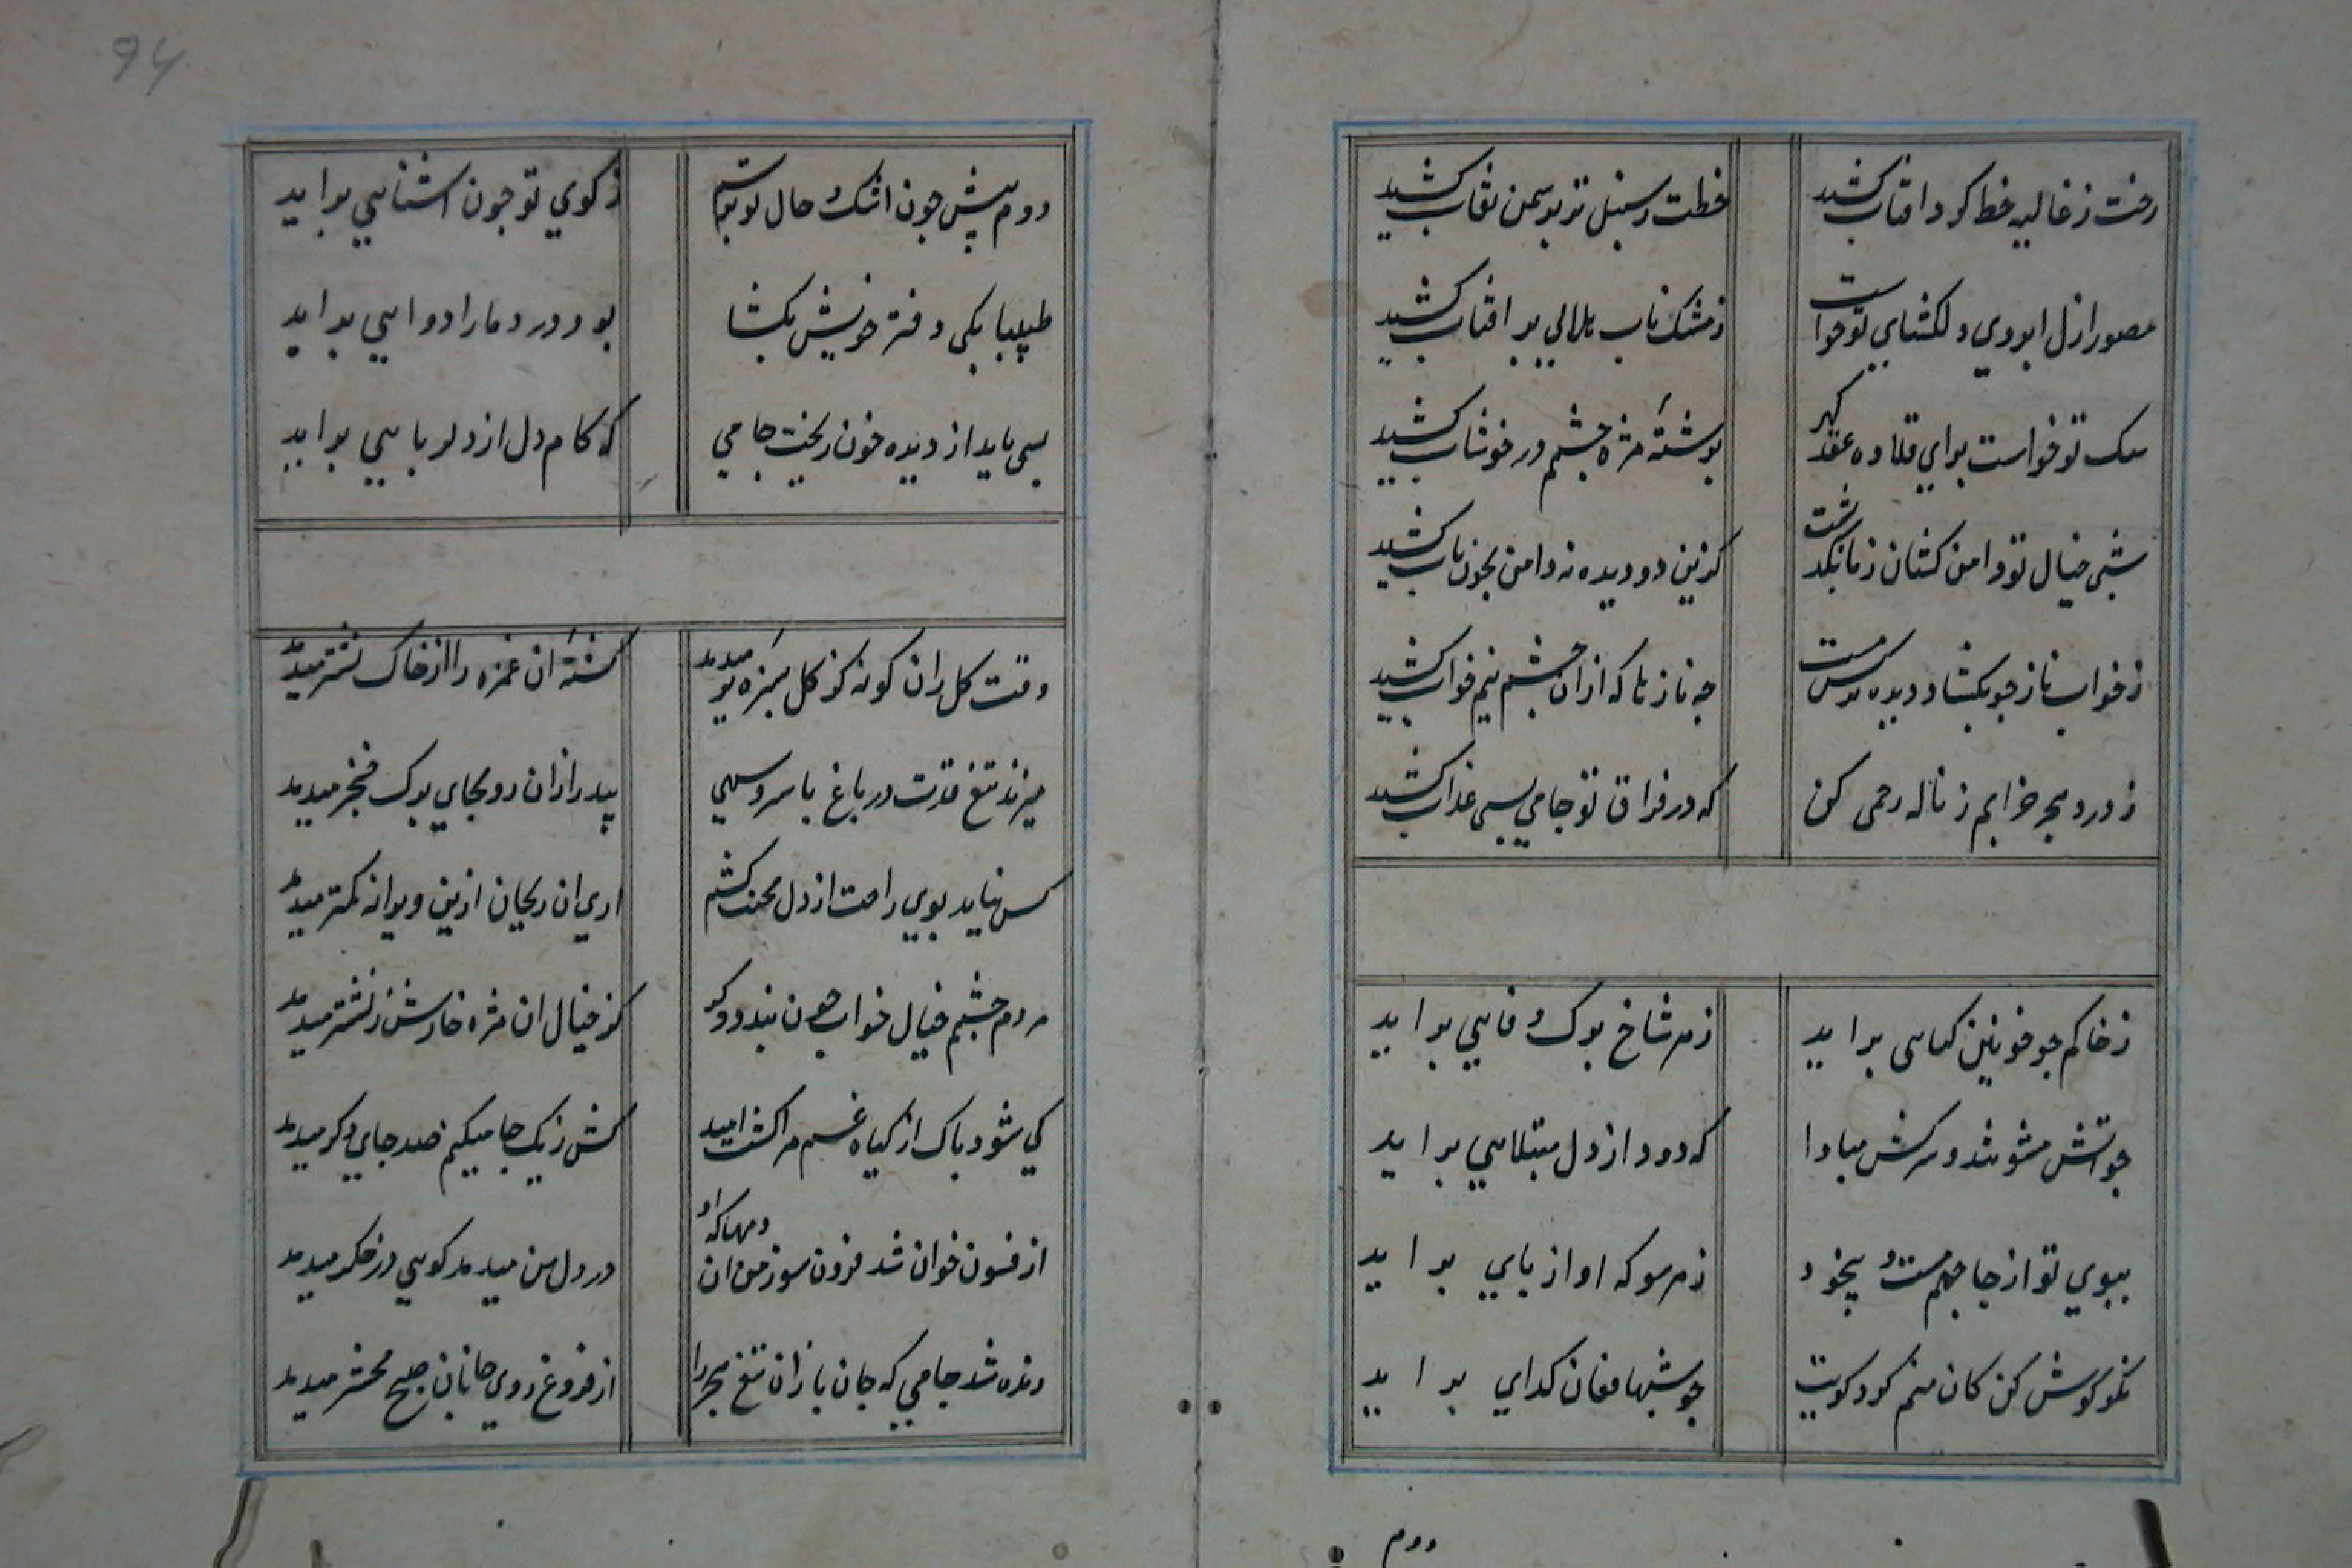 رخت ز غالیه خط کرد افتاب کشید
خطت ز سنبل تر بر سمن نقاب کشید
مصور ازل ابروی دلکشای تو خواست
ز مشک ناب هلالی بر افتاب کشید
سک تو خواست برای قلاده عقد کهر
برشتهٔ مژه چشمم در خوشاب کشید
شبی خیال تو دامن کشان ز ما بگذشت
کزین دو دیده نه دامن بخون ناب کشید
ز خواب ناز چو بکشاد دیده نرکس مست
چه ناز ها که از ان چشم نیم خواب کشید
ز درد هجر خرابم ز ناله رحمی کن
که در فراق تو جامی بسی عذاب کشید
ز خاکم چو خونین کیاهی براید
ز هر شاخ برک وفایی براید
چو اتش مشو تند و سرکش مبادا
که دود از دل مبتلایی براید
ببوی تو از جا جهم مست و بیخود
ز هر سو که اواز پای براید
نکو کوش کن کان منم کرد کویت
چو شبها فغان کدای براید
دوم
94
دوم پیش چون اشک و حال تو پرسم
ز کوی تو چون اشنایی براید
طبیبا یکی دفتر خویش بکشا
بود درد ما را دوایی براید
بسی باید از دیده خون ریخت جامی
که کام دل از دلربایی براید
وقت کل ز ان کونه کز کل سبزه تر میدمد
کشتهٔ ان غمزه را از خاک نشتر میدمد
میزند تیغ قدت در باغ با سرو سهی
بید را ز ان رو بجای برک خنجر میدمد
کس نیابد بوی راحت از دل محنت کشم
اری ان ریحان ازین ویرانه کمتر میدمد
مردم چشمم خیال خواب چون بندد و کو
کز خیال ان مژه خارش ز نشتر میدمد
کی شود پاک از کیاه غم مرا کشت امید
کش ز یک جا میکیم صد جای دکر میدمد
از فسون خوان شد فزون سوز من ان دمها که او
در دل من میدمد کویی در اخکر میدمد
زنده شد جامی که جان باز ان تیغ هجر را
از فروغ روی جانان صبح محشر میدمد